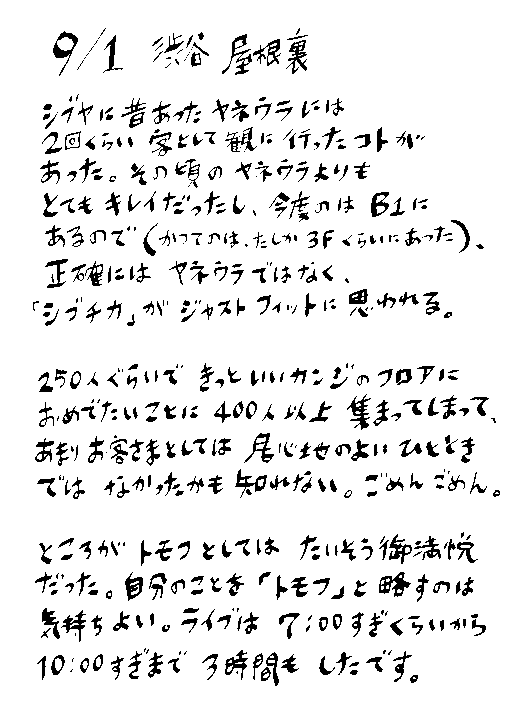 9/1 渋谷 屋根裏
シブヤに昔あったヤネウラには
2回くらい 客として観に行ったコトが
あった。その頃のヤネウラよりも
とてもキレイだったし、今度のは B1に
あるので(かつてのは、たしか3Fくらいにあった)、
正確には ヤネウラではなく、
「シブチカ」が ジャストフィットに思われる。
250人ぐらいで きっといいカンジのフロアに
おめでたいことに 400人以上 集まってしまって、
あまりお客さまとしては 居心地のよいひととき
では なかったかも知れない。ごめんごめん。
ところが トモフとしては たいそう御満悦
だった。自分のことを「トモフ」と略すのは
気持ちよい。ライブは 7:00すぎくらいから
10:00すぎまで 3時間も したです。